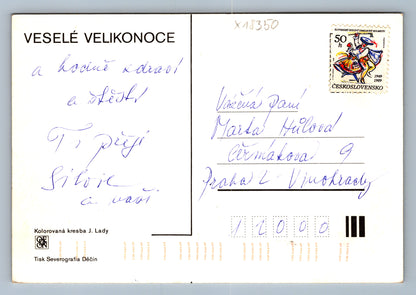 x18350
VESELÉ VELIKONOCE
a hodně zdraví
a štěstí
Ti přejí
Silvie
a naši
Kolorovaná kresba J. Lady
Tisk Severografia Děčín
50
h
1949
1989
ČESKOSLOVENSKO
Vážená paní
Marta Hůlová
Čermákova 9
Praha 2 - Vinohrady
12000